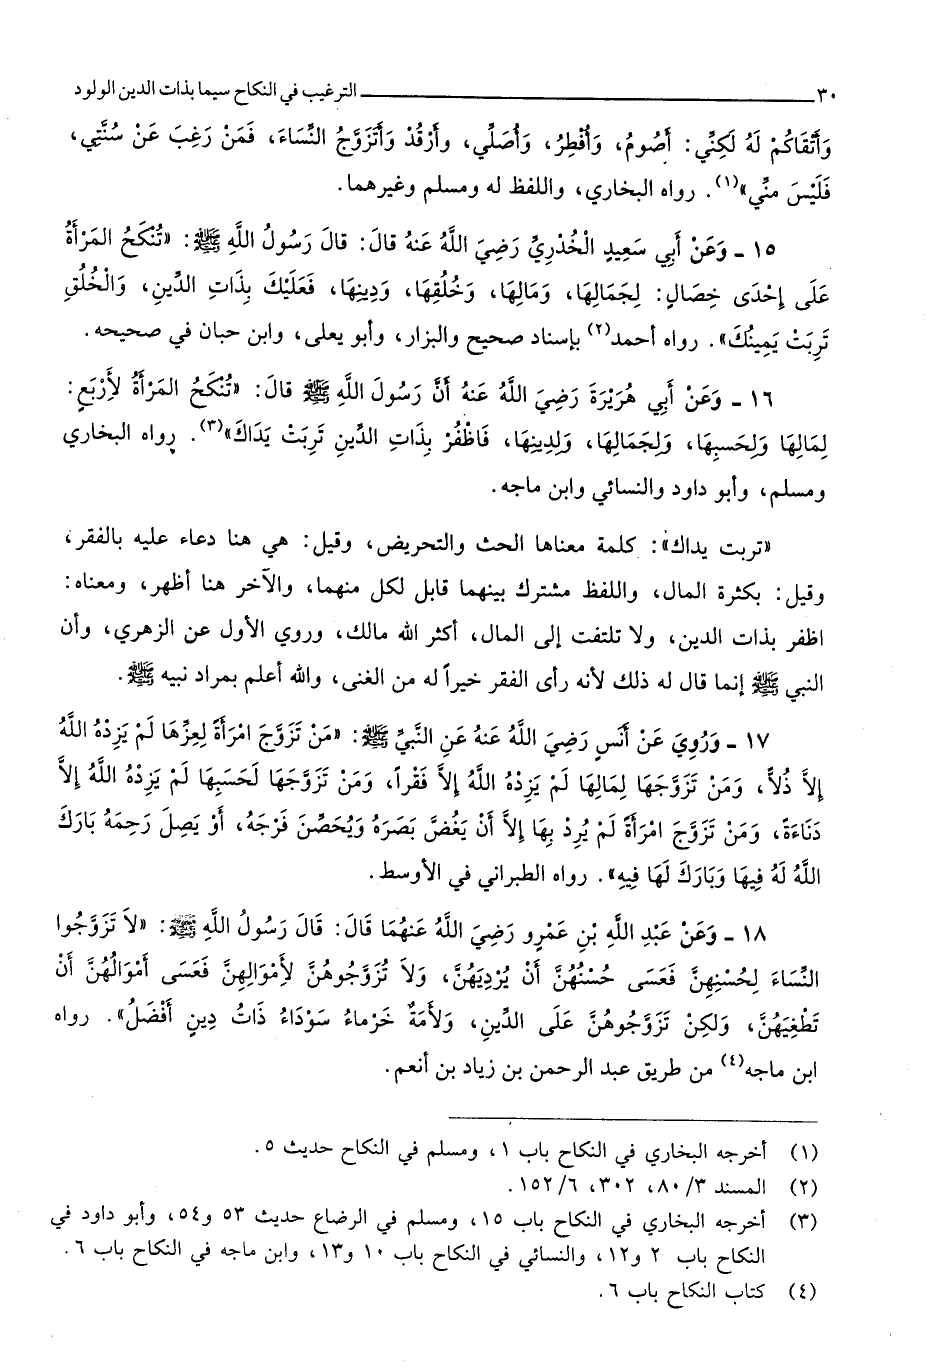 ٣٠ ــــــ الترغيب في النكاح سيما بذات الدين الولود
وَأَتْقَاكُمْ لَهُ لَكِنِّي: أَصُومُ، وَأُفْطِرُ، وَأُصَلِّي، وأَرْقُدْ وَأَتَزَوَّجُ النِّسَاءَ، فَمَنْ رَغِبَ عَنْ سُنَّتِي،
فَلَيْسَ مِنِّي»(١). رواه البخاري، واللفظ له ومسلم وغيرهما.
١٥ ـ وَعَنْ أَبِي سَعِيدٍ الْخُدْرِيِّ رَضِيَ اللَّهُ عَنْهُ قالَ: قالَ رَسُولُ اللَّهِ ﷺ: «تُنْكَحُ المَرْأَةُ
عَلَى إِحْدَى خِصَالٍ: لِجَمَالِهَا، وَمَالِهَا، وَخُلُقِهَا، وَدِينِهَا، فَعَلَيْكَ بِذَاتِ الدِّينِ، وَالْخُلُقِ
تَرِبَتْ يَمِينُكَ». رواه أحمد(٢) بإسناد صحيح والبزار، وأبو يعلى، وابن حبان في صحيحه.
١٦ ـ وَعَنْ أَبِي هُرَيْرَةَ رَضِيَ اللَّهُ عَنْهُ أَنَّ رَسُولَ اللَّهِ ﷺ قالَ: «تُنْكَحُ المَرْأَةُ لِأَرْبَعٍ:
لِمَالِهَا وَلِحَسبِهَا، وَلِجَمَالِهَا، وَلِدِينِهَا، فَاظْفُرْ بِذَاتِ الدِّينِ تَرِبَتْ يَدَاكَ»(٣). رواه البخاري
ومسلم، وأبو داود والنسائي وابن ماجه.
«تربت يداك»: كلمة معناها الحث والتحريض، وقيل: هي هنا دعاء عليه بالفقر،
وقيل: بكثرة المال، واللفظ مشترك بينهما قابل لكل منهما، والآخر هنا أظهر، ومعناه:
اظفر بذات الدين، ولا تلتفت إلى المال، أكثر الله مالك، وروي الأول عن الزهري، وأن
النبي ﷺ إنما قال له ذلك لأنه رأى الفقر خيراً له من الغنى، والله أعلم بمراد نبيه ﷺ.
١٧ ـ وَرُوِيَ عَنْ أَنَسٍ رَضِيَ اللَّهُ عَنْهُ عَنِ النَّبِيِّ ﷺ: «مَنْ تَزَوَّجَ امْرَأَةً لِعِزِّهَا لَمْ يَزِدْهُ اللَّهُ
إِلاَّ ذُلاًّ، وَمَنْ تَزَوَّجَهَا لِمَالِهَا لَمْ يَزِدْهُ اللَّهُ إِلاَّ فَقْراً، وَمَنْ تَزَوَّجَهَا لَحَسَبِهَا لَمْ يَزِدْهُ اللَّهُ إِلاَّ
دَنَاءَةً، وَمَنْ تَزَوَّجَ امْرَأَةً لَمْ يُرِدْ بِهَا إِلاَّ أَنْ يَغُضَّ بَصَرَهُ وَيُحَصِّنَ فَرْجَهُ، أَوْ يَصِلَ رَحِمَهُ بَارَكَ
اللَّهُ لَهُ فِيهَا وَبَارَكَ لَهَا فِيهِ». رواه الطبراني في الأوسط.
١٨ ـ وَعَنْ عَبْدِ اللَّهِ بْنِ عَمْرٍو رَضِيَ اللَّهُ عَنْهُمَا قَالَ: قَالَ رَسُولُ اللَّهِ ﷺ: «لاَ تَزَوَّجُوا
النِّسَاءَ لِحُسْنِهِنَّ فَعَسَى حُسْنُهُنَّ أَنْ يُرْدِيَهُنَّ، وَلاَ تُزَوَّجُوهُنَّ لِأَمْوَالِهِنَّ فَعَسَى أَمْوَالُهُنَّ أَنْ
تَطْغِيَهُنَّ، وَلكِنْ تَزَوَّجُوهُنَّ عَلَى الدِّينِ، وَلأَمَةٌ خَرْمَاءُ سَوْدَاءُ ذَاتُ دِينٍ أَفْضَلُ». رواه
ابن ماجه(٤) من طريق عبد الرحمن بن زياد بن أنعم.
(١) أخرجه البخاري في النكاح باب ١، ومسلم في النكاح حديث ٥.
(٢) المسند ٣/ ٨٠، ٣٠٢، ٦/ ١٥٢.
(٣) أخرجه البخاري في النكاح باب ١٥، ومسلم في الرضاع حديث ٥٣ و٥٤، وأبو داود في
النكاح باب ٢ و١٢، والنسائي في النكاح باب ١٠ و١٣، وابن ماجه في النكاح باب ٦.
(٤) كتاب النكاح باب ٦.